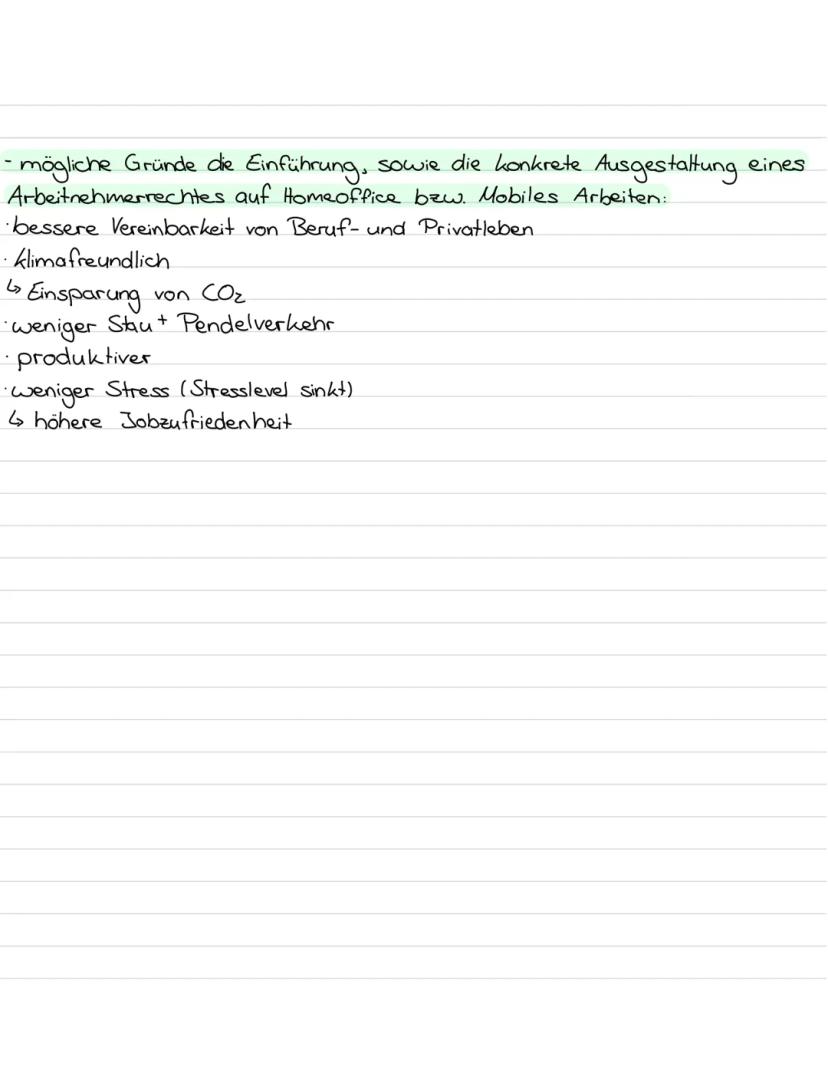 - mögliche Gründe die Einführung, sowie die konkrete Ausgestaltung eines
Arbeitnehmerrechtes auf Homeoffice bzw. Mobiles Arbeiten:
· bessere Vereinbarkeit von Beruf- und Privatleben
· klimafreundlich
↳ Einsparung von CO₂
· weniger Stau + Pendelverkehr
· produktiver
· weniger Stress (Stresslevel sinkt)
↳ höhere Jobzufriedenheit